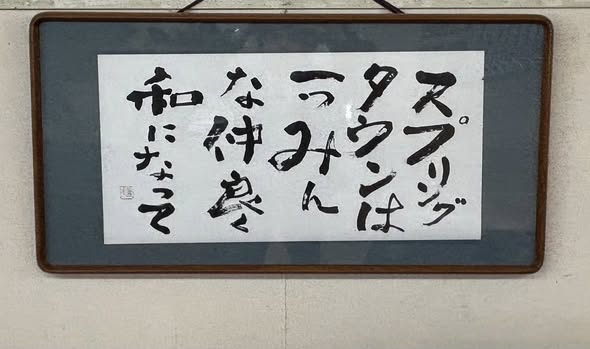 スプリング
タウンは
一つみん
な仲良く
和になって